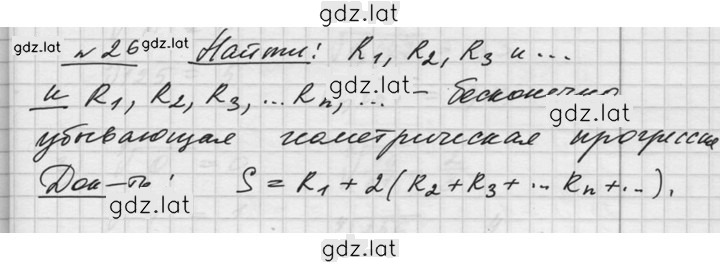 gdz.lat
gdz.lat N 26 gdz.lat Найти: R₁, R₂, R₃ и ...
и R₁, R₂, R₃, ... Rₙ, ... – бесконечно
gdz.lat gdz.lat
убывающая геометрическая прогрессия
Док-ть: S = R₁ + 2(R₂ + R₃ + ... Rₙ + ...).
gdz.lat gdz.lat
gdz.lat